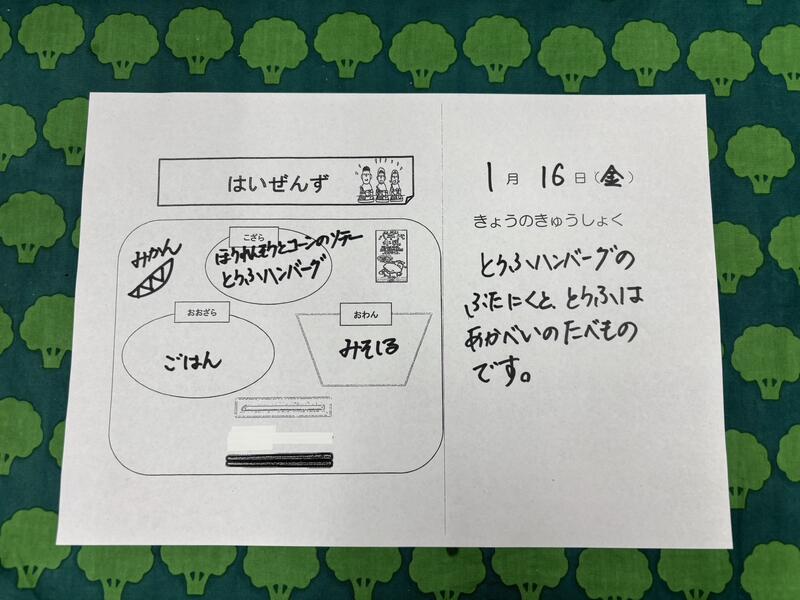 はいぜんず
みかん
こざら
ほうれんそうとコーンのソテー
とうふハンバーグ
おおざら
ごはん
おわん
みそしる
1月16日(金)
きょうのきゅうしょく
とうふハンバーグの
ぶたにくと、とうふは
あかべいのたべもの
です。